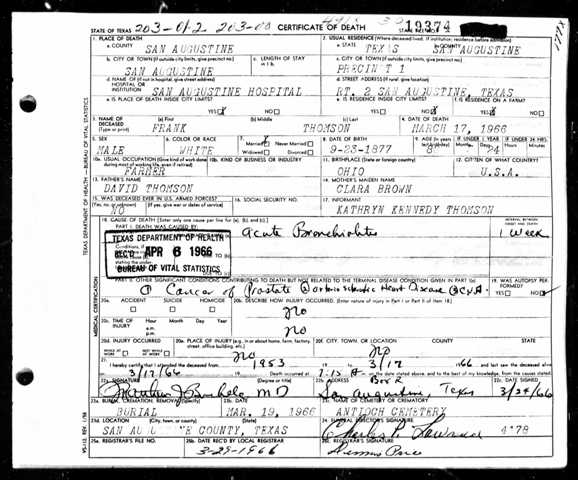 STATE OF TEXAS 203-01-2 203-00 CERTIFICATE OF DEATH STATE FILE NO. 19374
1. PLACE OF DEATH 2. USUAL RESIDENCE (Where deceased lived. If institution: residence before admission)
a. COUNTY SAN AUGUSTINE a. STATE TEXAS b. COUNTY SAN AUGUSTINE
b. CITY OR TOWN (If outside city limits, give precinct no.) c. LENGTH OF STAY in 1 b. c. CITY OR TOWN (If outside city limits, give precinct no.)
SAN AUGUSTINE PRECINT 1
d. NAME OF (If not in hospital, give street address) HOSPITAL OR INSTITUTION SAN AUGUSTINE HOSPITAL d. STREET ADDRESS (If rural, give location) RT. 2 SAN AUGUSTINE, TEXAS
e. IS PLACE OF DEATH INSIDE CITY LIMITS? YES NO e. IS RESIDENCE INSIDE CITY LIMITS? YES NO f. IS RESIDENCE ON A FARM? YES NO
3. NAME OF DECEASED (Type or print) (a) First (b) Middle (c) Last 4. DATE OF DEATH
FRANK THOMSON MARCH 17, 1966
5. SEX 6. COLOR OR RACE 7. Married Never Married Widowed Divorced 8. DATE OF BIRTH 9. AGE IF UNDER 1 YEAR IF UNDER 24 HRS.
MALE WHITE 9-23-1877 8 24
10a. USUAL OCCUPATION (Give kind of work done 10b. KIND OF BUSINESS OR INDUSTRY 11. BIRTHPLACE (State or foreign country) 12. CITIZEN OF WHAT COUNTRY?
FARMER OHIO U.S.A.
13. FATHER'S NAME 14. MOTHER'S MAIDEN NAME
DAVID THOMSON CLARA BROWN
15. WAS DECEASED EVER IN U.S. ARMED FORCES? 16. SOCIAL SECURITY NO. 17. INFORMANT
(Yes, no, or unknown) (If yes, give war or dates of service)
NO KATHRYN KENNEDY THOMSON
18. CAUSE OF DEATH [Enter only one cause per line for (a), (b), and (c).] INTERVAL BETWEEN ONSET AND DEATH
PART I. DEATH WAS CAUSED BY: Acute Bronchiolitis 1 Week
TEXAS DEPARTMENT OF HEALTH
REC'D APR 6 1966
BUREAU OF VITAL STATISTICS
PART II. OTHER SIGNIFICANT CONDITIONS CONTRIBUTING TO DEATH BUT NOT RELATED TO THE TERMINAL DISEASE CONDITION GIVEN IN PART I(a) 19. WAS AUTOPSY PERFORMED?
Cancer of Prostate Heart Disease YES NO
20a. ACCIDENT SUICIDE HOMICIDE 20b. DESCRIBE HOW INJURY OCCURRED. (Enter nature of injury in Part I or Part II of item 18.)
No
20c. TIME OF INJURY Hour Month Day Year a.m. p.m. No
20d. INJURY OCCURRED 20e. PLACE OF INJURY (e.g., in or about home, farm, factory, street, office building, etc.) 20f. CITY, TOWN, OR LOCATION COUNTY STATE
WHILE AT WORK NOT WHILE AT WORK No No
21. I hereby certify that I attended the deceased from 1953 3/17 66 and last saw the deceased alive
on 3/17/66 Death occurred at 7:15 A m. on the date stated above; and to the best of my knowledge, from the causes stated
22a. SIGNATURE MD 22b. ADDRESS Box R San Augustine, Texas 22c. DATE SIGNED 3/24/66
23a. BURIAL, CREMATION, REMOVAL (Specify) 23b. DATE 23c. NAME OF CEMETERY OR CREMATORY
BURIAL MAR. 19, 1966 ANTIOCH CEMETERY
23d. LOCATION (City, town, or county) (State) 24. FUNERAL DIRECTOR'S SIGNATURE
SAN AUGUSTINE COUNTY, TEXAS Charles P. 4178
25a. REGISTRAR'S FILE NO. 25b. DATE REC'D BY LOCAL REGISTRAR 25c. REGISTRAR'S SIGNATURE
3-29-1966
TEXAS DEPARTMENT OF HEALTH - BUREAU OF VITAL STATISTICS
MEDICAL CERTIFICATION